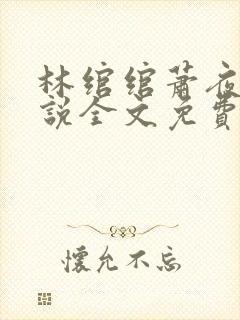 林绾绾萧夜
説全文免費
懷允不忘